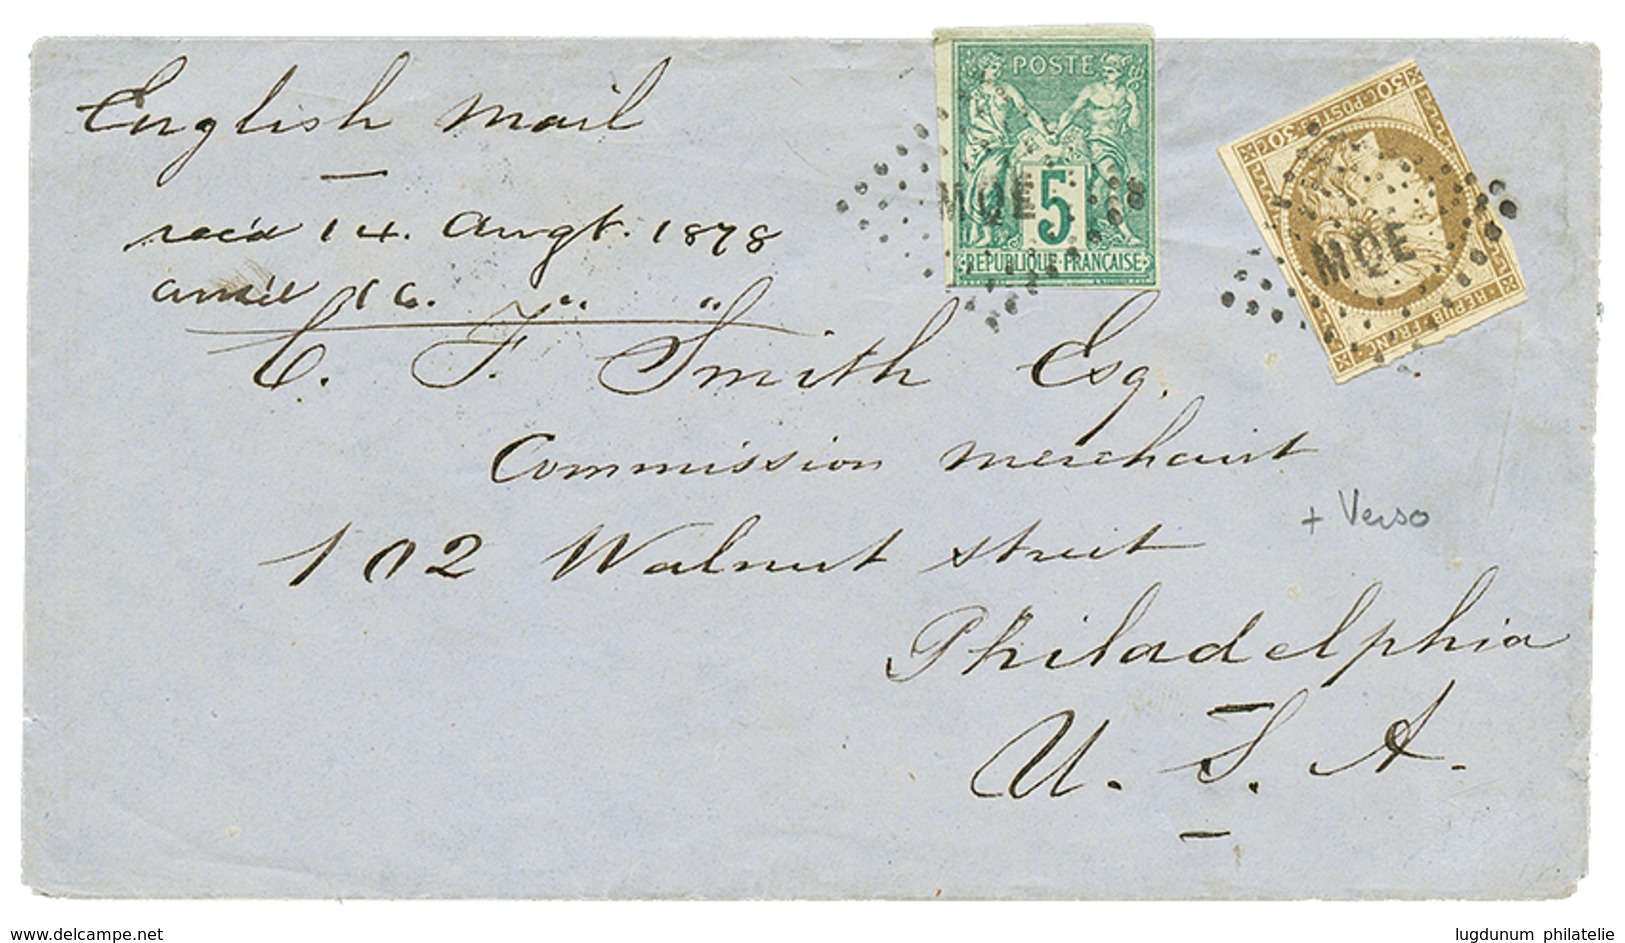 English Mail
rec'd 14. Augt. 1878
ans'd 16. " "
C. F. Smith Esq.
Commission Merchant
102 Walnut Street
Philadelphia
U. S. A.
+ Verso
POSTE
5
REPUBLIQUE FRANÇAISE
MQE
30 C. POSTES. 30 C
REPUB. FRANC.
MQE
delcampe.net
lugdunum philatelie